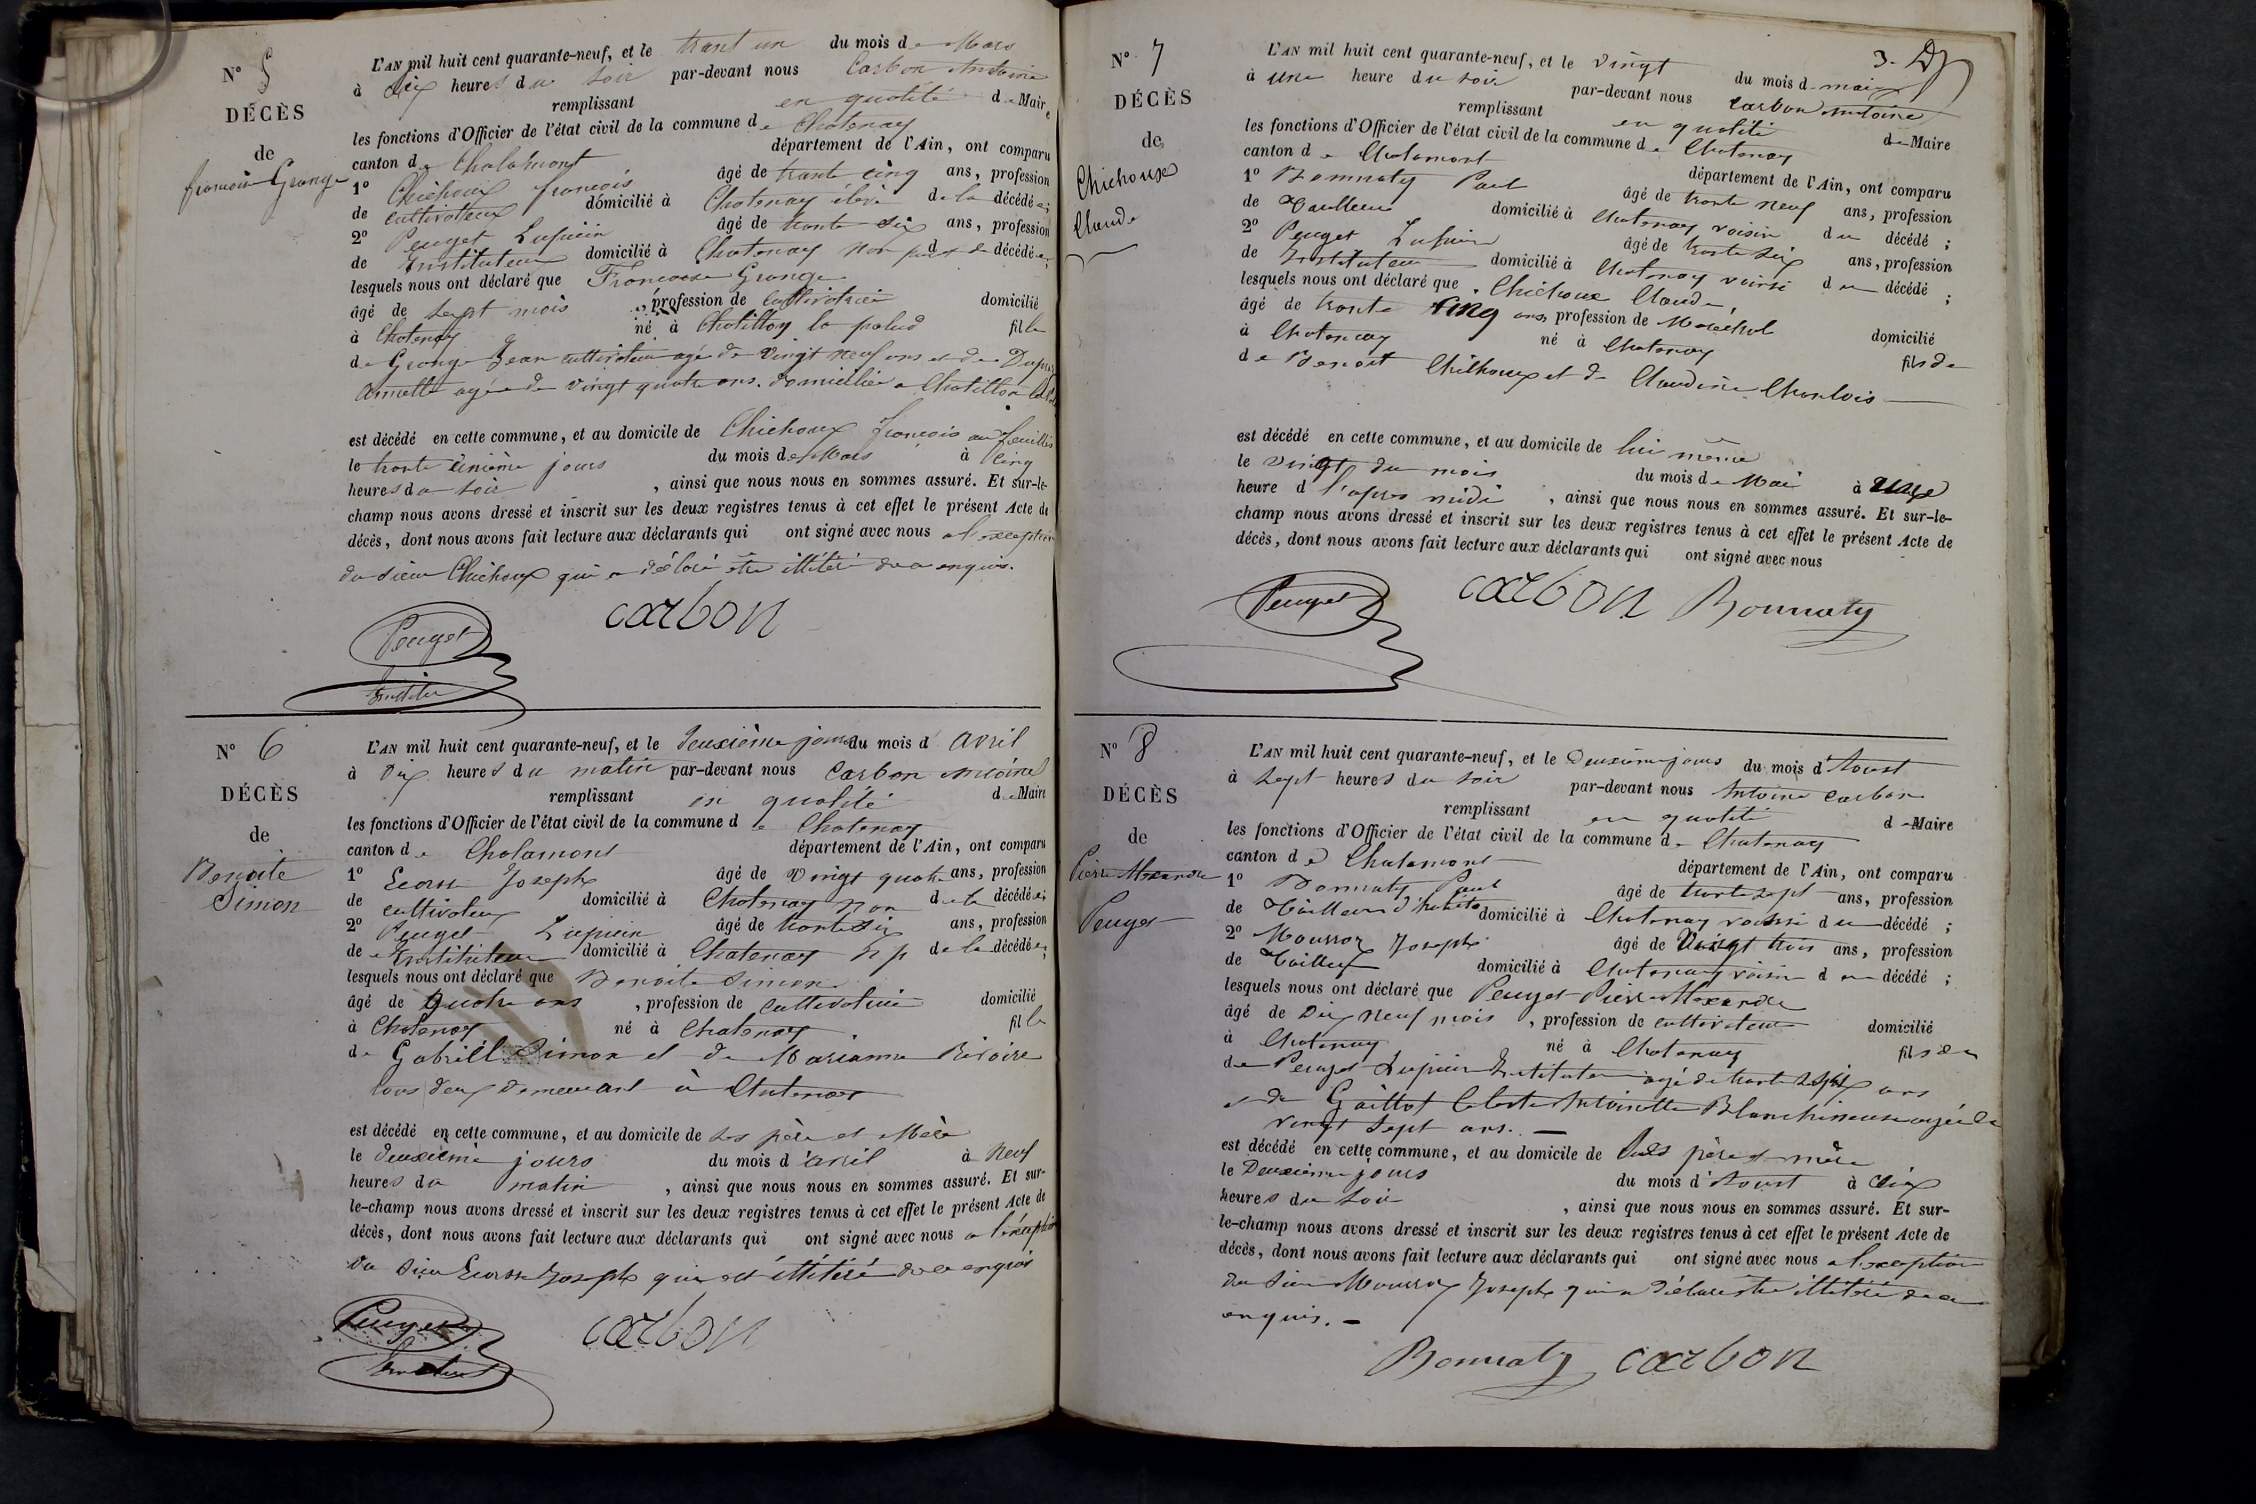 N° 5
DÉCÈS
de
francoise Grange
L'AN mil huit cent quarante-neuf, et le trant un du mois de Mars
à six heures du soir par-devant nous Carbon Antoine
remplissant en qualité de Maire
les fonctions d'Officier de l'état civil de la commune de Chatenay
canton de Chalamont département de l'Ain, ont comparu
1° Chichoux francois âgé de trante cinq ans, profession
de cultivateur domicilié à Chatenay de la décédée;
2° Peuget Lupicin âgé de trante six ans, profession
de Instituteur domicilié à Chatenay non décédée;
lesquels nous ont déclaré que Francoise Grange
âgé de sept mois, profession de cultivatrice domicilié
à Chatenay né à Chatillon la palud fille
de Grange Jean cultivateur agé de vingt neuf ans et de
agée de vingt quatre ans. domicilié a Chatillon la
est décédé en cette commune, et au domicile de Chichoux francois
le trante unième jours du mois de Mars à cinq
heures du soir, ainsi que nous nous en sommes assuré. Et sur-le-
champ nous avons dressé et inscrit sur les deux registres tenus à cet effet le présent Acte de
décès, dont nous avons fait lecture aux déclarants qui ont signé avec nous a l'exception
du sieur Chichoux qui a déclaré être illitéré de ce enquis.
Peuget carbon
N° 6
DÉCÈS
de
Benoite
Simon
L'AN mil huit cent quarante-neuf, et le deuxième jours du mois d'avril
à dix heures du matin par-devant nous Carbon Antoine
remplissant en qualité de Maire
les fonctions d'Officier de l'état civil de la commune de Chatenay
canton de Chalamont département de l'Ain, ont comparu
1° Joseph âgé de vingt quatre ans, profession
de cultivateur domicilié à Chatenay non de la décédée;
2° Peuget Lupicin âgé de trante six ans, profession
de Instituteur domicilié à Chatenay n p de la décédée;
lesquels nous ont déclaré que Benoite Simon
âgé de quatre ans, profession de cultivatrice domicilié
à Chatenay né à Chatenay fille
de Gabriel Simon et de Marianne
tous deux demeurant à Chatenay
est décédé en cette commune, et au domicile de ses père et Mère
le deuxième jours du mois d'avril à neuf
heures du matin, ainsi que nous nous en sommes assuré. Et sur-
le-champ nous avons dressé et inscrit sur les deux registres tenus à cet effet le présent Acte de
décès, dont nous avons fait lecture aux déclarants qui ont signé avec nous a l'exception
du sieur Joseph qui est illitéré de ce enquis
Peuget carbon
3.
N° 7
DÉCÈS
de
Chichoux
Claude
L'AN mil huit cent quarante-neuf, et le vingt du mois de mai
à une heure du soir par-devant nous carbon Antoine
remplissant en qualité de Maire
les fonctions d'Officier de l'état civil de la commune de Chatenay
canton de Chalamont département de l'Ain, ont comparu
1° Bonnaty Paul âgé de trante neuf ans, profession
de Tailleur domicilié à Chatenay voisin du décédé;
2° Peuget Lupicin âgé de trante six ans, profession
de Instituteur domicilié à Chatenay voisin du décédé;
lesquels nous ont déclaré que Chichoux Claude,
âgé de trante cinq ans profession de Maréchal domicilié
à Chatenay né à Chatenay fils de
de Benoit Chichoux et de Claudine
est décédé en cette commune, et au domicile de lui même
le vingt du mois du mois de Mai à une
heure d l'apres midi, ainsi que nous nous en sommes assuré. Et sur-le-
champ nous avons dressé et inscrit sur les deux registres tenus à cet effet le présent Acte de
décès, dont nous avons fait lecture aux déclarants qui ont signé avec nous
Peuget carbon Bonnaty
N° 8
DÉCÈS
de
Pierre Alexandre
Peuget
L'AN mil huit cent quarante-neuf, et le Deuxième jours du mois d'Aoust
à sept heures du soir par-devant nous Antoine carbon
remplissant en qualité de Maire
les fonctions d'Officier de l'état civil de la commune de Chatenay
canton de Chalamont département de l'Ain, ont comparu
1° Bonnaty Paul âgé de trante sept ans, profession
de Tailleur d'habits domicilié à Chatenay voisin du décédé;
2° Joseph âgé de vingt trois ans, profession
de Tailleur domicilié à Chatenay voisin du décédé;
lesquels nous ont déclaré que Peuget Pierre Alexandre
âgé de Dix neuf mois, profession de cultivateur domicilié
à Chatenay né à Chatenay fils de
de Peuget Lupicin Instituteur agé de trante ans
et de Celeste Antoinette Blanchisseuse agée de
vingt sept ans.
est décédé en cette commune, et au domicile de père et mère
le Deuxième jours du mois d'Aoust à six
heures du soir, ainsi que nous nous en sommes assuré. Et sur-
le-champ nous avons dressé et inscrit sur les deux registres tenus à cet effet le présent Acte de
décès, dont nous avons fait lecture aux déclarants qui ont signé avec nous a l'exception
du sieur Joseph qui a déclaré être illitéré de ce
enquis.
Bonnaty carbon